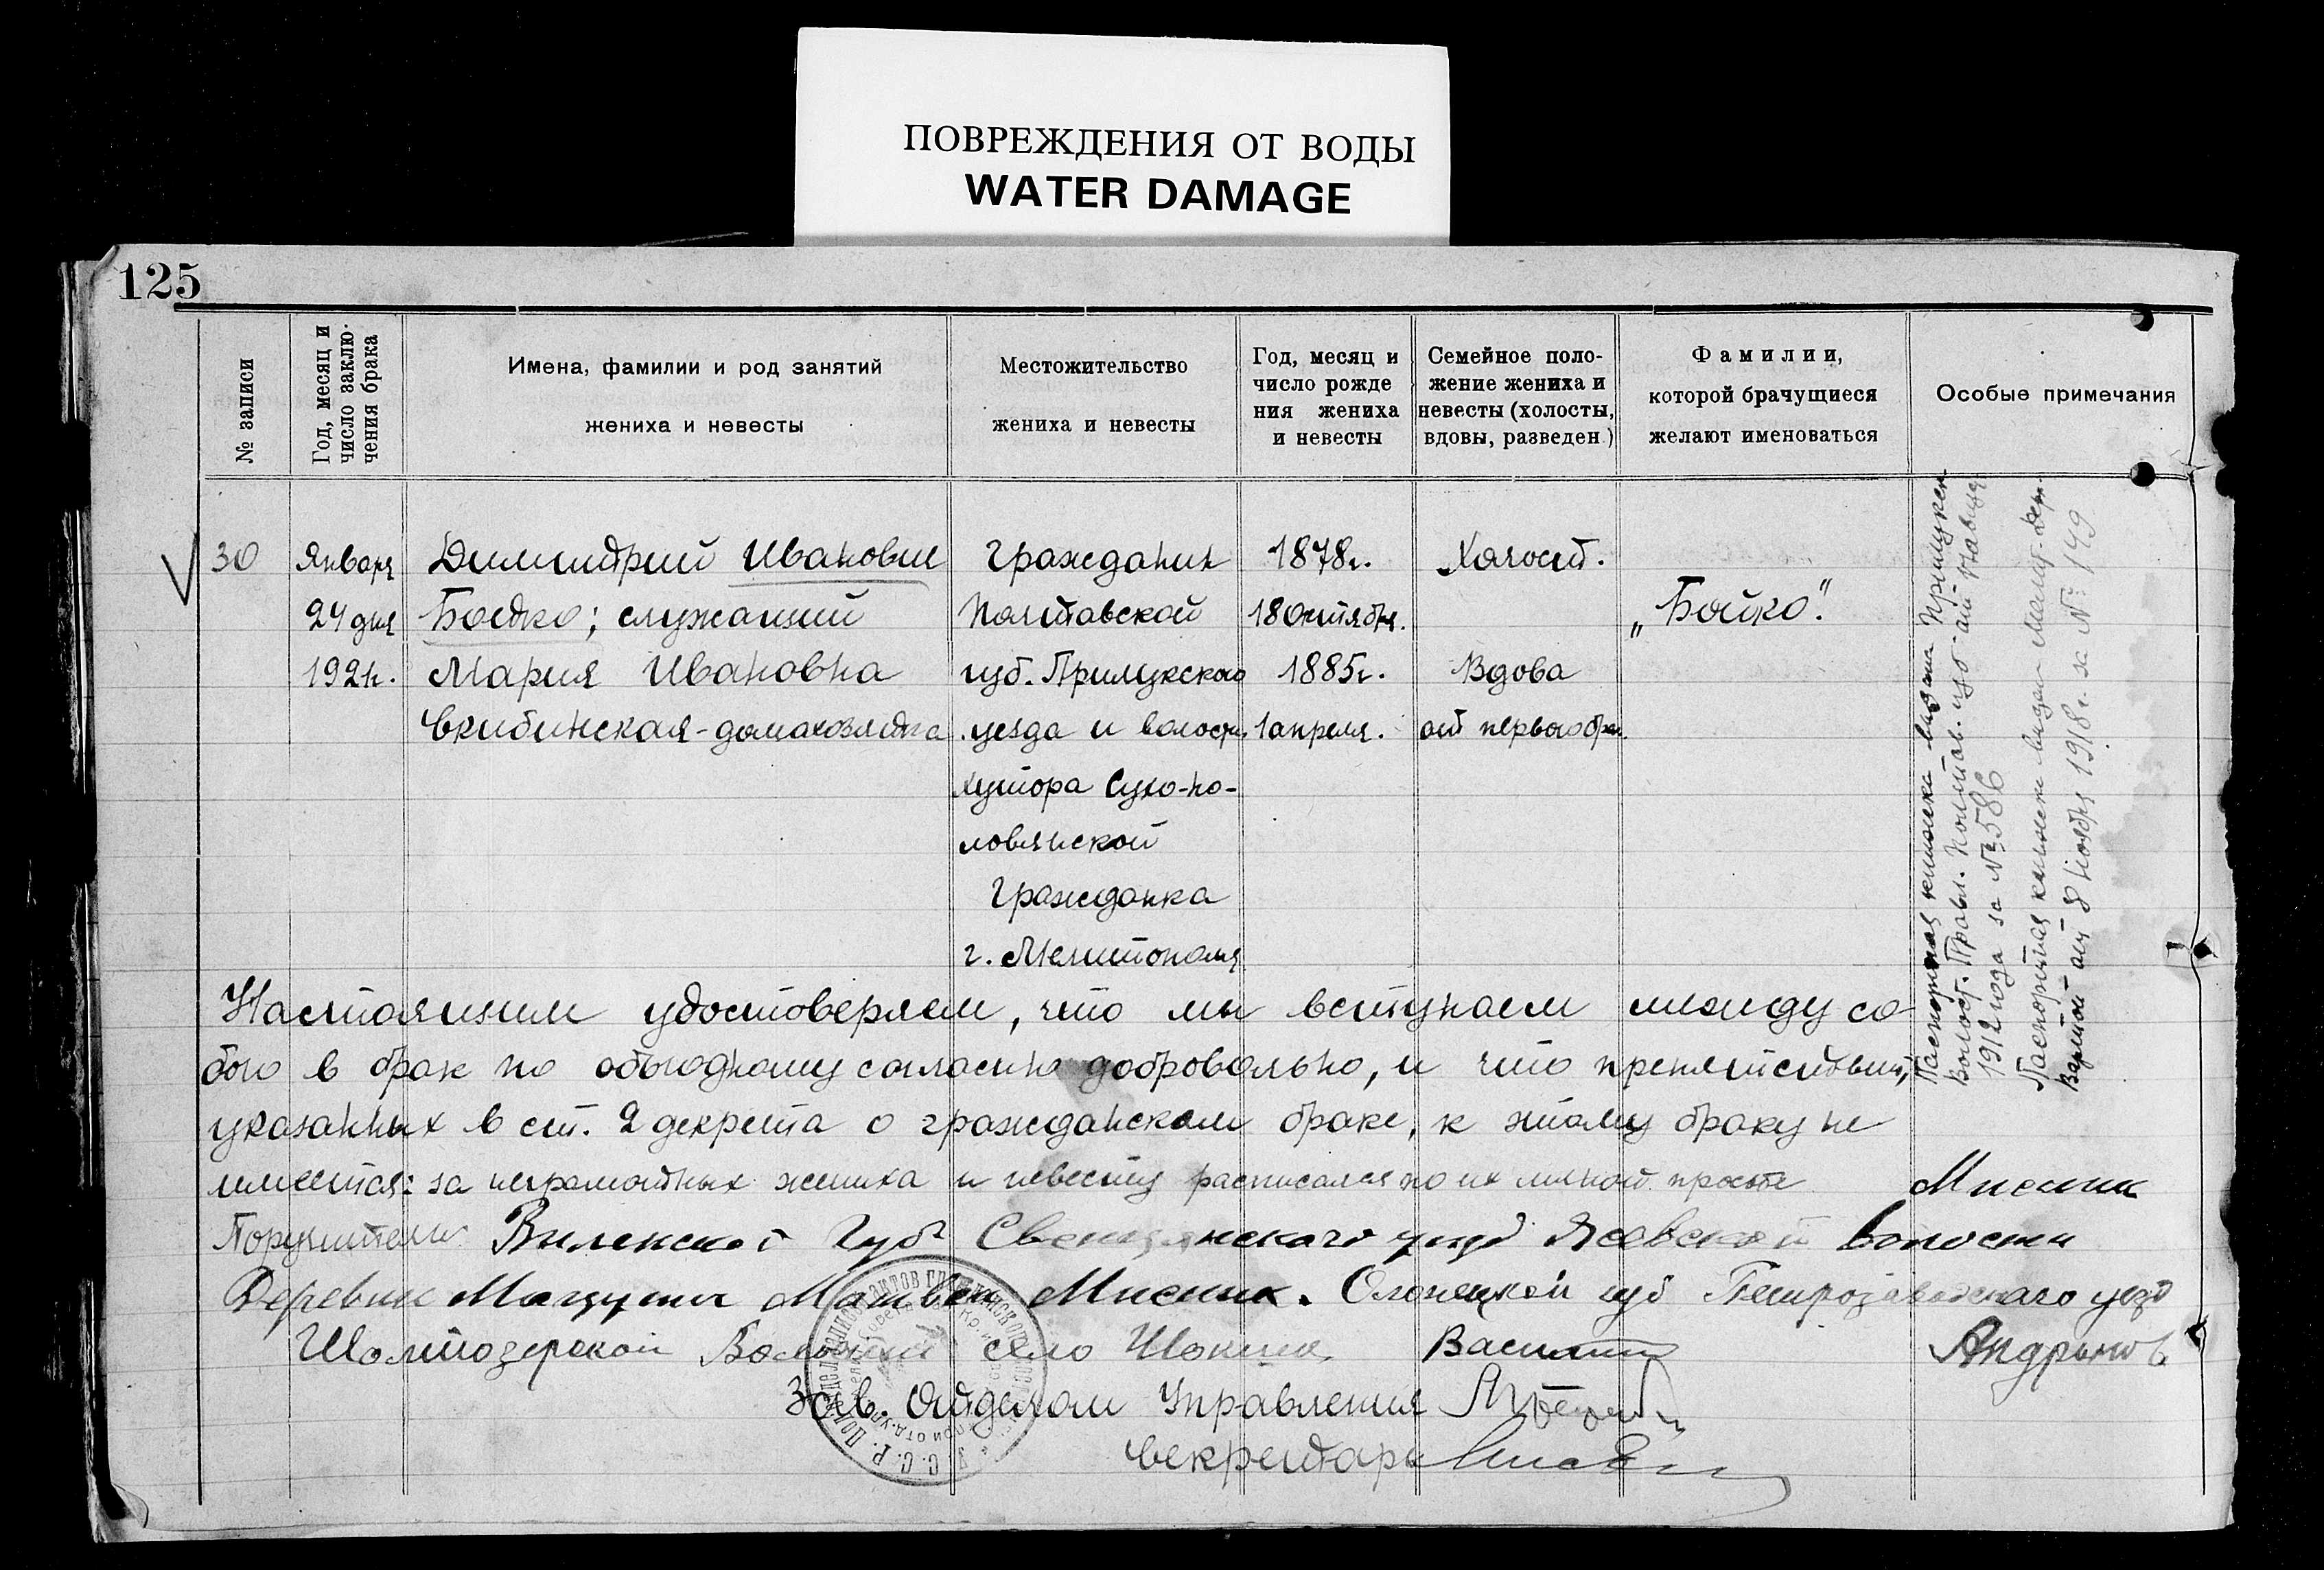 ПОВРЕЖДЕНИЯ ОТ ВОДЫ
WATER DAMAGE
125
№ записи
Год, месяц и
число заклю-
чения брака
Имена, фамилии и род занятий
жениха и невесты
Местожительство
жениха и невесты
Год, месяц и
число рожде
ния жениха
и невесты
Семейное поло-
жение жениха и
невесты (холосты,
вдовы, разведен.)
Фамилии,
которой брачущиеся
желают именоваться
Особые примечания
30
Января
24 дня
1921г.
Димитрий Иванович
Бойко; служащий
Мария Ивановна
Скибинская-домахозяйка
Гражданин
Полтавской
губ. Прилукского
уезда и волости
хутора Сухо-по-
ловянской
Гражданка
г. Мелитополя
1878г.
18 октября.
1885г.
1 апреля.
Холост.
Вдова
от первого брак.
„Бойко".
Паспортная книжка выдана Прилукск.
Волост. Правл. Полтав. губ. от
1912 года за № 3586
Паспортная книжка выдан Мелит.
от 8 Ноября 1918 г. за № 149
Настоящим удостоверяем, что мы вступаем между со-
бою в брак по обоюдному согласию добровольно, и что препятствий,
указанных в ст. 2 декрета о гражданском браке, к этому браку не
имеется: за неграмотных жениха и невесту расписался по их личной просьбе
Мисник
Поручители Виленской Губ Свенцянского уезд Волости
Деревни Матвей Мисник. Олонецкой губ Петрозаводского уезд
Шолтозерской Волости село Шокша Василий Андронов
Зав. Отделом Управления
Секретарь